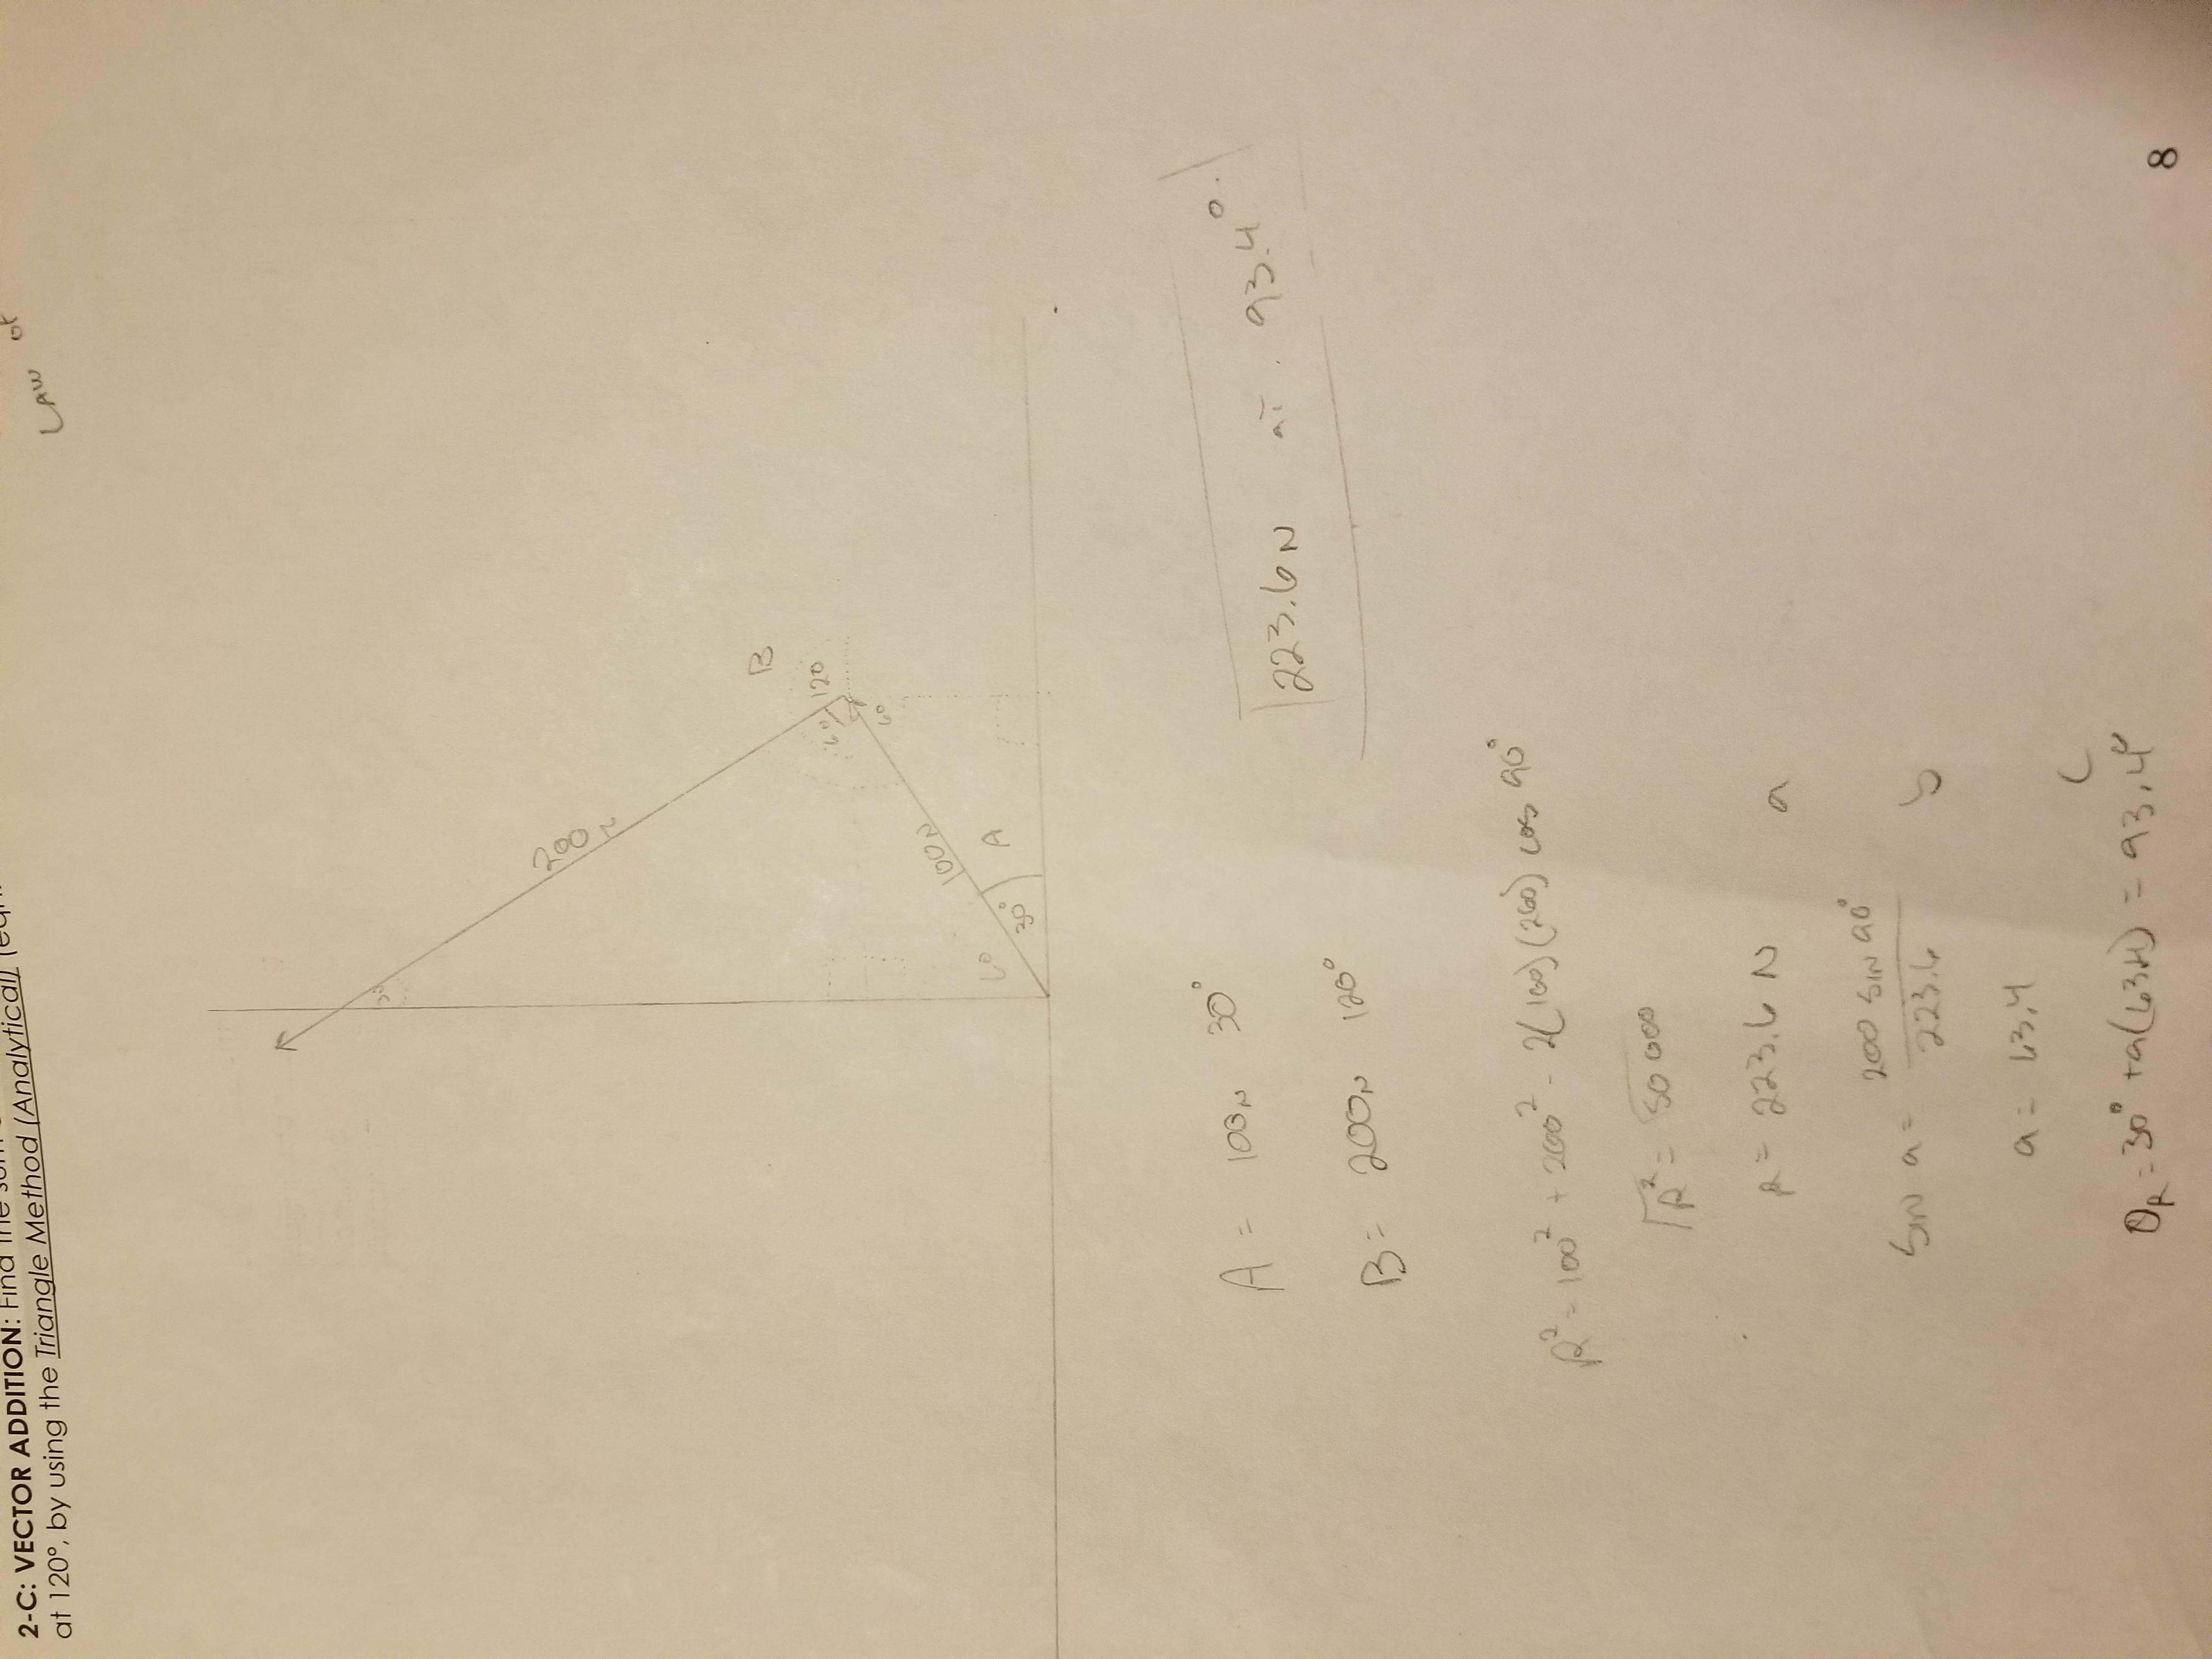 2-C: VECTOR ADDITION: Find the sum
at 120°, by using the Triangle Method (Analytical) (eqn.
LAW of
200 N
B
60
120
60
100N
60
30°
A
A = 100N 30°
223.6 N at. 93.4°.
B = 200N 120°
R² = 100² + 200² - 2(100)(200) cos 90°
√R² = √50 000
R = 223.6 N
a
Sin a = 200 SIN 90° / 223.6
b
a = 63.4
C
θR = 30° + a(63.4) = 93.4°
8